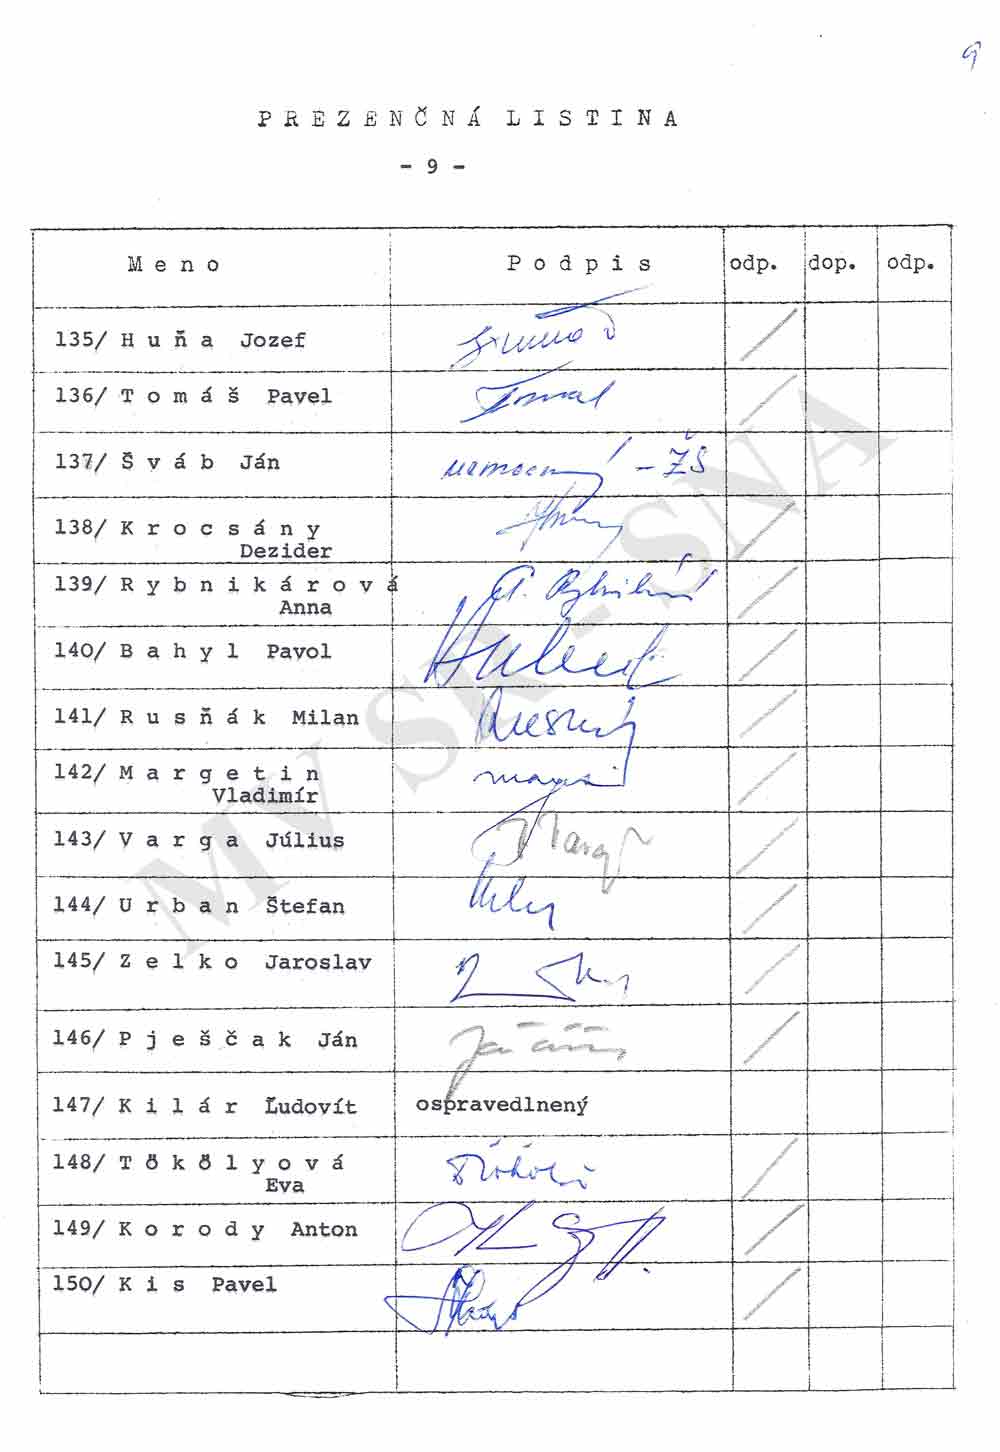 9
PREZENČNÁ LISTINA
- 9 -
Meno Podpis odp. dop. odp.
135/ Huňa Jozef
136/ Tomáš Pavel
137/ Šváb Ján nemocný - ŽS
138/ Krocsány
Dezider
139/ Rybnikárová
Anna
140/ Bahyl Pavol
141/ Rusňák Milan
142/ Margetin
Vladimír
143/ Varga Július
144/ Urban Štefan
145/ Zelko Jaroslav
146/ Pješčak Ján
147/ Kilár Ľudovít ospravedlnený
148/ Tőkőlyová
Eva
149/ Korody Anton
150/ Kis Pavel
MV SR - SNA